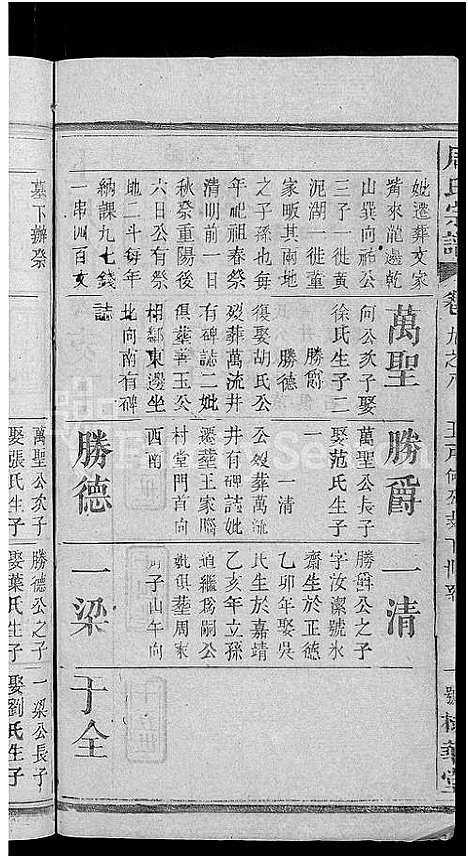 周氏宗譜
卷九之八
妣遷葬文家
嘴來龍邊乾
山巽向祐公
三子一徙黃
泥湖一徙童
家畈其兩地
之子孫也每
年祀祖春祭
清明前一日
秋祭重陽後
六日公有祭
地二斗每年
納課九七錢
一串四百文
萬聖
何公次子娶
徐氏生子二
勝爵
勝德
復娶胡氏公
歿葬萬流井
有碑誌二妣
俱葬善玉公
相鄰東邊坐
北向南有碑
誌
勝爵
萬聖公長子
娶范氏生子
一
一清
公歿葬萬流
井有碑誌妣
遷葬王家腦
村堂門首向
西南
一清
勝爵公之子
字汝潔號氷
齋生於正德
乙卯年娶吳
氏生於嘉靖
乙亥年立孫
道繼爲嗣公
妣俱葬周家
子山午向
勝德
萬聖公次子
娶張氏生子
一梁
勝德公之子
娶葉氏生子
于全
一梁公長子
娶劉氏生子
墓下辦祭